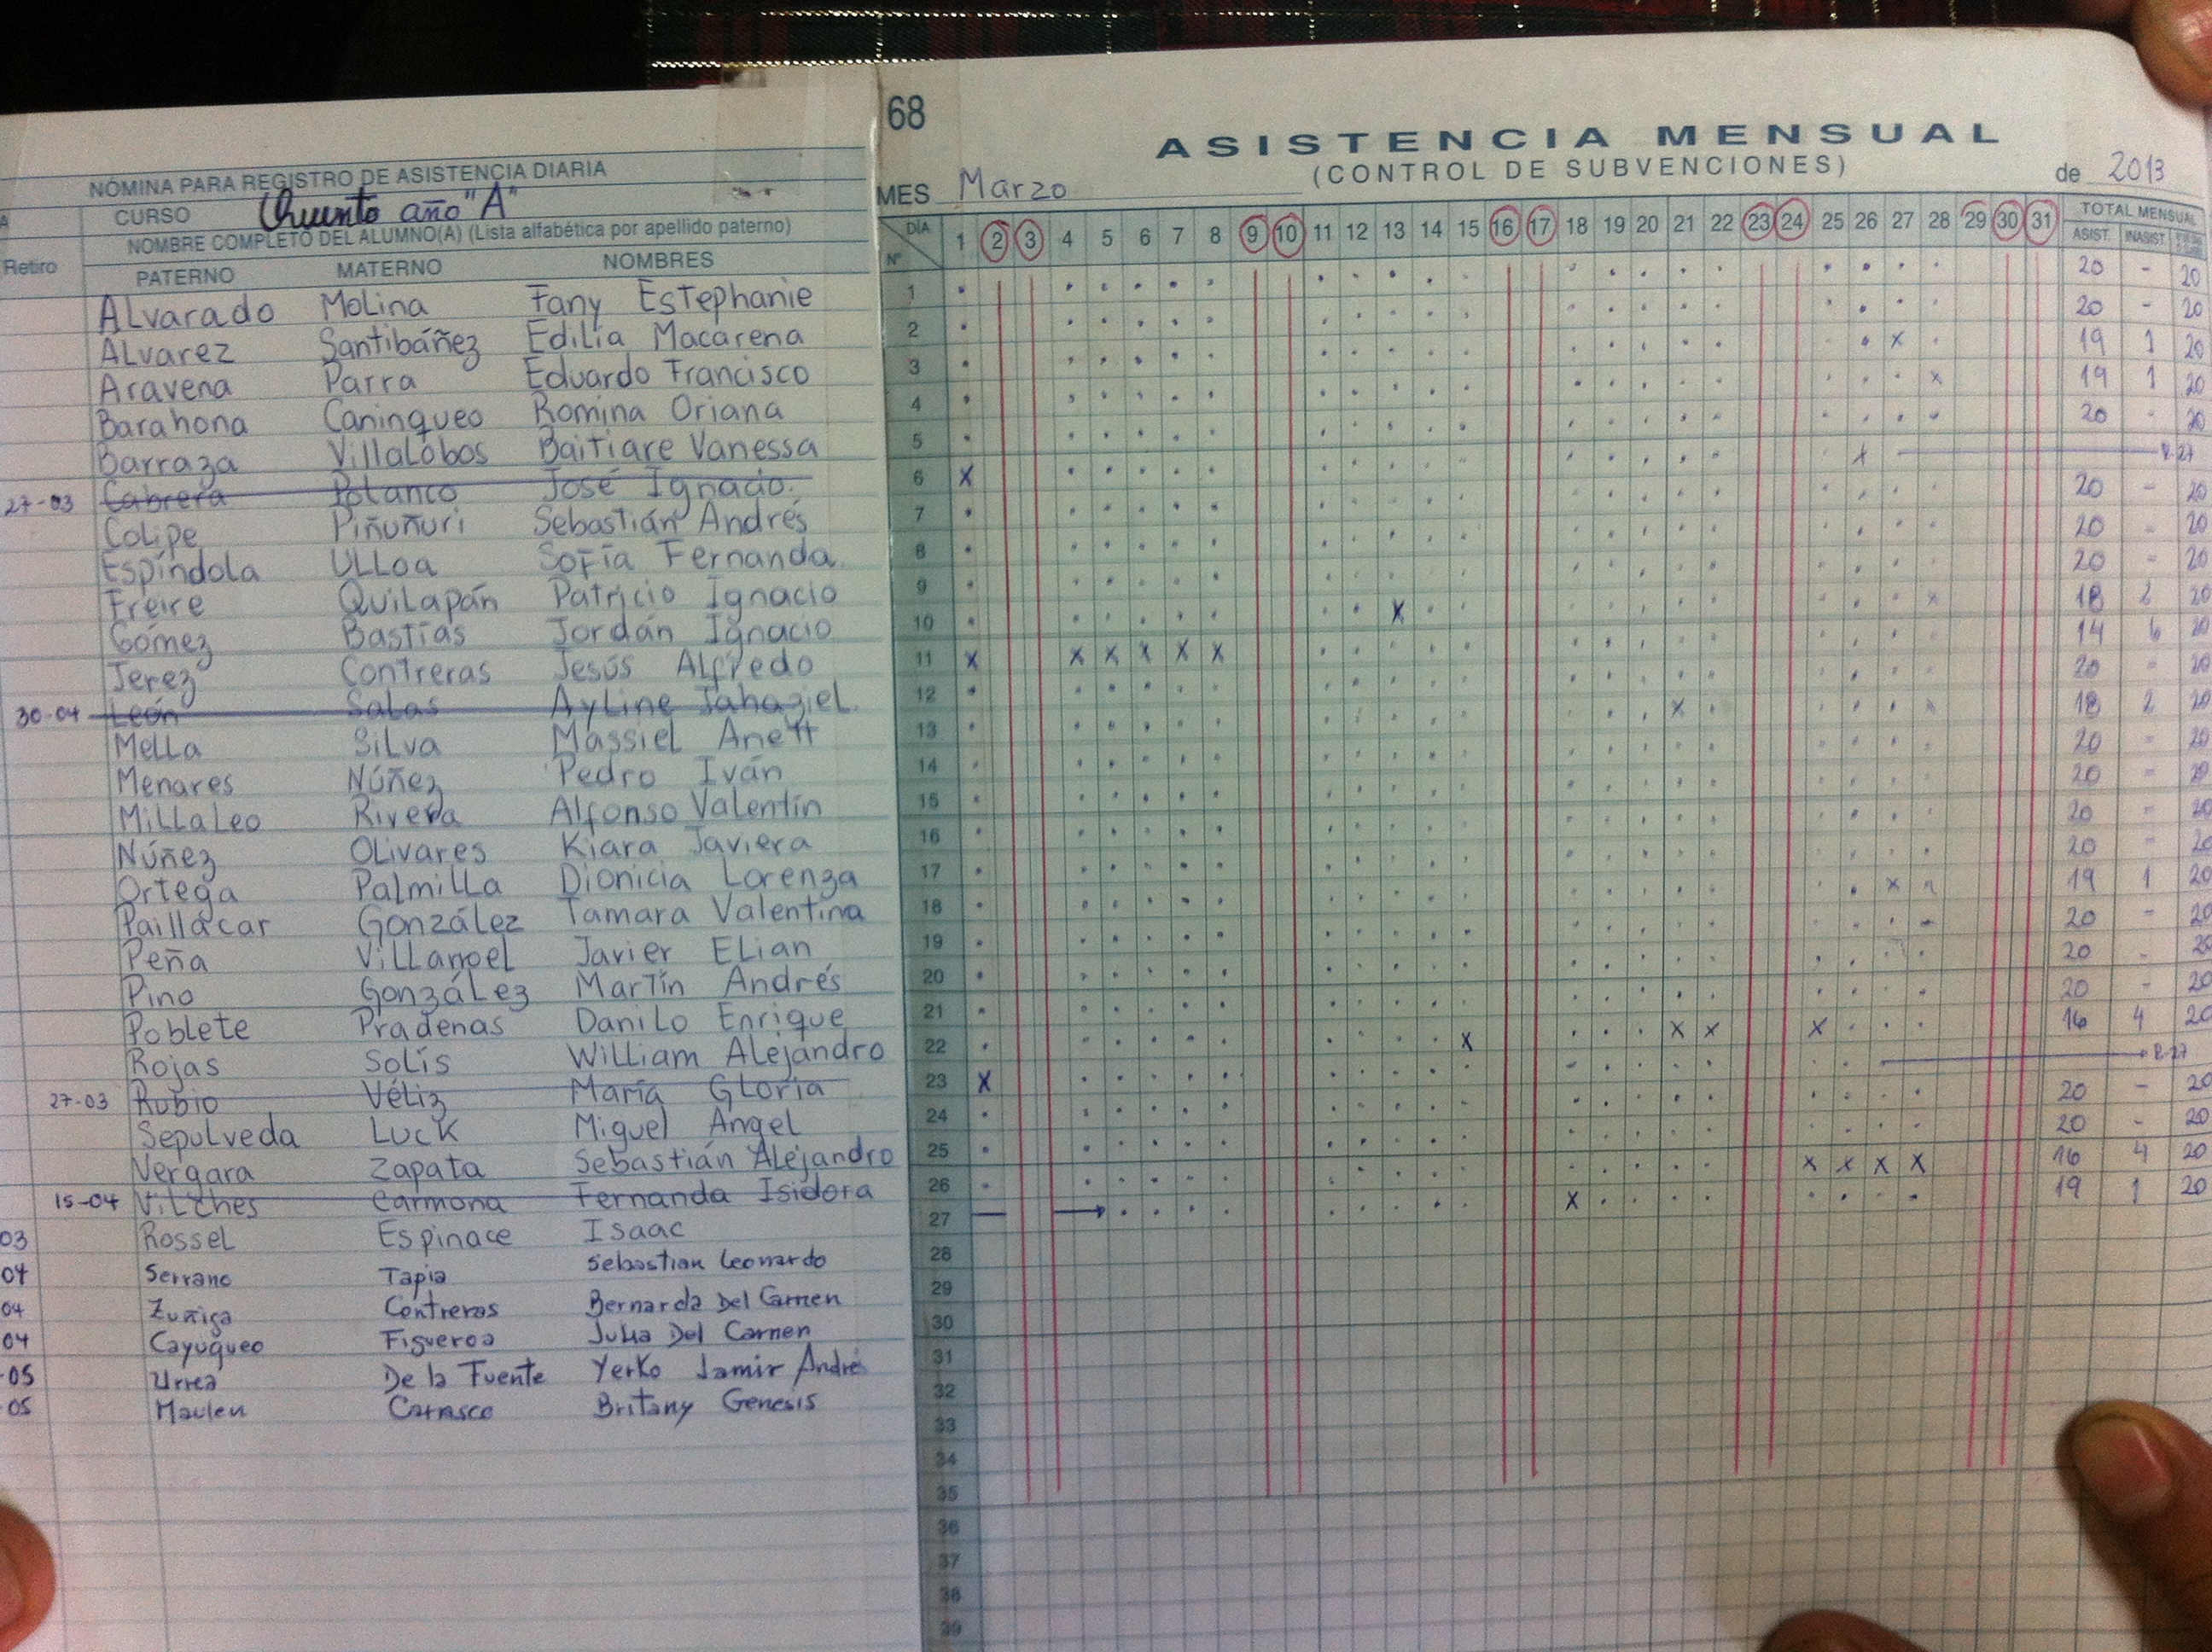 NÓMINA PARA REGISTRO DE ASISTENCIA DIARIA
CURSO Quinto año "A"
NOMBRE COMPLETO DEL ALUMNO(A) (Lista alfabética por apellido paterno)
Retiro PATERNO MATERNO NOMBRES
Alvarado Molina Fany Estephanie
Alvarez Santibáñez Edilia Macarena
Aravena Parra Eduardo Francisco
Barahona Caningueo Romina Oriana
Barraza Villalobos Baitiare Vanessa
27-03 Cabrera Polanco José Ignacio.
Colipe Piñuñuri Sebastián Andrés
Espíndola Ulloa Sofía Fernanda.
Freire Quilapán Patricio Ignacio
Gómez Bastías Jordán Ignacio
Jerez Contreras Jesús Alfredo
30-04 León Salas Ayline Jahaziel.
Mella Silva Massiel Anett
Menares Núñez Pedro Iván
Millaleo Rivera Alfonso Valentín
Núñez Olivares Kiara Javiera
Ortega Palmilla Dionicia Lorenza
Paillacar González Tamara Valentina
Peña Villanoel Javier Elian
Pino González Martín Andrés
Poblete Pradenas Danilo Enrique
Rojas Solís William Alejandro
27-03 Rubio Véliz María Gloria
Sepulveda Luck Miguel Angel
Vergara Zapata Sebastián Alejandro
15-04 Vilches Carmona Fernanda Isidora
03 Rossel Espinace Isaac
04 Serrano Tapia Sebastian Leonardo
04 Zuñiga Contreras Bernarda Del Carmen
04 Cayuqueo Figueroa Julia Del Carmen
-05 Urrea De la Fuente Yerko Jamir Andrés
-05 Maulen Carrasco Britany Genesis
68
ASISTENCIA MENSUAL
(CONTROL DE SUBVENCIONES)
MES Marzo de 2013
DÍA 1 2 3 4 5 6 7 8 9 10 11 12 13 14 15 16 17 18 19 20 21 22 23 24 25 26 27 28 29 30 31 TOTAL MENSUAL
Nº ASIST. INASIST.
1 20 - 20
2 20 - 20
3 19 1 20
4 19 1 20
5 20 - 20
6
7 20 - 20
8 20 - 20
9 20 - 20
10 18 2 20
11 14 6 20
12 20 - 20
13 18 2 20
14 20 - 20
15 20 - 20
16 20 - 20
17 20 - 20
18 19 1 20
19 20 - 20
20 20 - 20
21 20 - 20
22 16 4 20
23
24 20 - 20
25 20 - 20
26 16 4 20
27 19 1 20
28
29
30
31
32
33
34
35
36
37
38
39